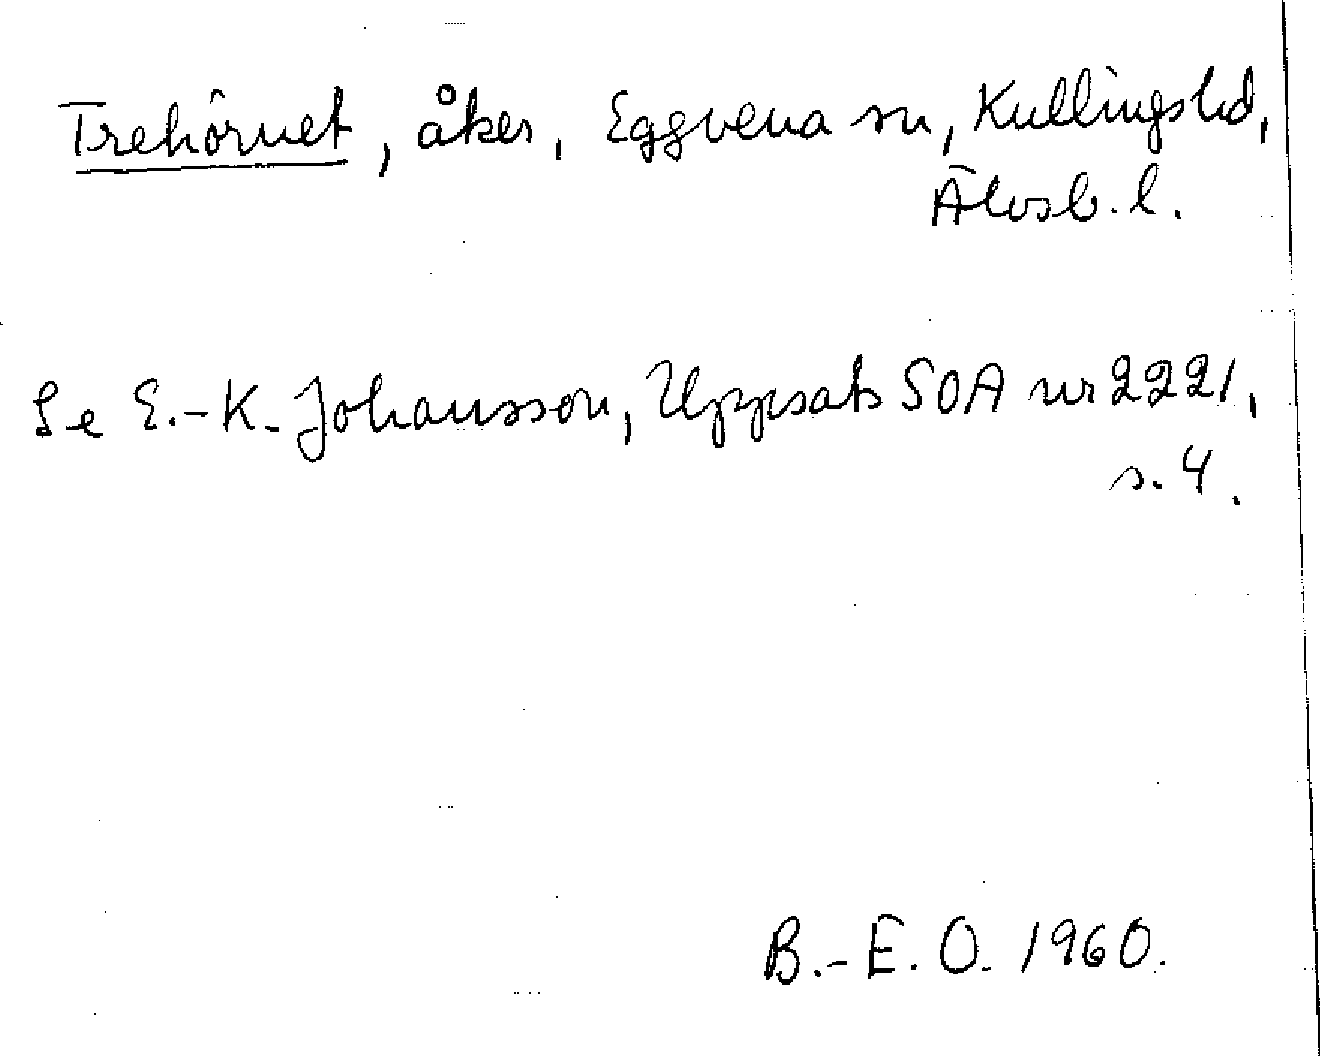 Trehörnet, åker, Eggvena sn, Kullings hd,
Älvsb. l.
Se E.-K. Johansson, Uppsats SOA nr 2221,
s. 4.
B.-E. O. 1960.